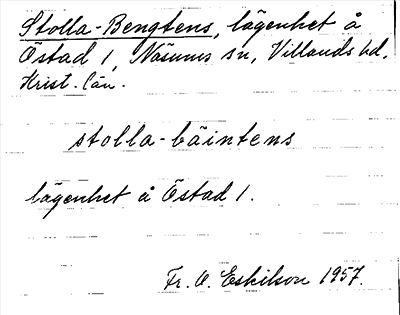 Stolla-Bengtens, lägenhet å
Östad 1, Näsums sn, Villands hd.
Krist. län.
stolla-bäintens
lägenhet å Östad 1.
Fr. O. Eskilson 1957.